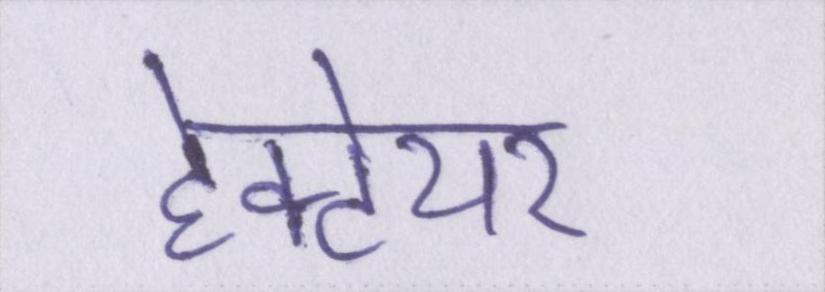 हेक्टेयर